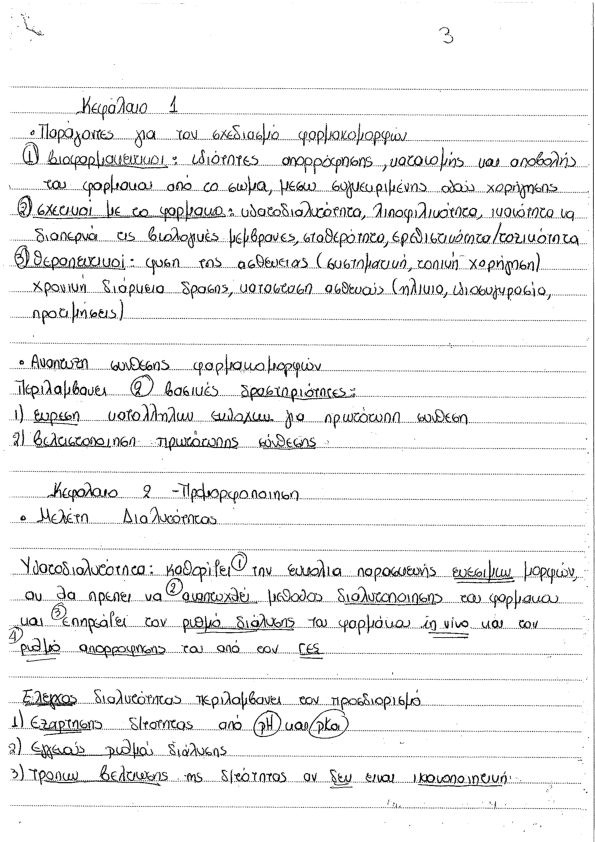 3
Κεφάλαιο 1
• Παράγοντες για τον σχεδιασμό φαρμακομορφών
① Βιοφαρμακευτικοί : ιδιότητες απορρόφησης, κατανομής και αποβολής
του φαρμάκου από το σώμα, μέσω συγκεκριμένης οδού χορήγησης
② σχετικοί με το φάρμακο : υδατοδιαλυτότητα, λιποφιλικότητα, ικανότητα να
διαπερνά τις βιολογικές μεμβράνες, σταθερότητα, ερεθιστικότητα/τοξικότητα
③ θεραπευτικοί : φύση της ασθένειας (συστηματική, τοπική χορήγηση)
χρονική διάρκεια δράσης, κατάσταση ασθενούς (ηλικία, ιδιοσυγκρασία,
προτιμήσεις)
• Ανάπτυξη σύνθεσης φαρμακομορφών
Περιλαμβάνει ② βασικές δραστηριότητες :
1) εύρεση κατάλληλων εκδόχων για πρωτότυπη σύνθεση
2) βελτιστοποίηση πρωτότυπης σύνθεσης
Κεφάλαιο 2 - Προμορφοποίηση
• Μελέτη Διαλυτότητας
Υδατοδιαλυτότητα : καθορίζει ① την ευκολία παρασκευής ενέσιμων μορφών,
αν θα πρέπει να ② αναπτυχθεί μέθοδος διαλυτοποίησης του φαρμάκου
και ③ επηρεάζει τον ρυθμό διάλυσης του φαρμάκου in vivo και τον
④ ρυθμό απορρόφησης του από τον ΓΕΣ
Έλεγχος διαλυτότητας περιλαμβάνει τον προσδιορισμό
1) Εξάρτησης δ/τότητας από pH και pKa
2) Εγγενούς ρυθμού διάλυσης
3) Τρόπων βελτίωσης της δ/τότητας αν δεν είναι ικανοποιητική